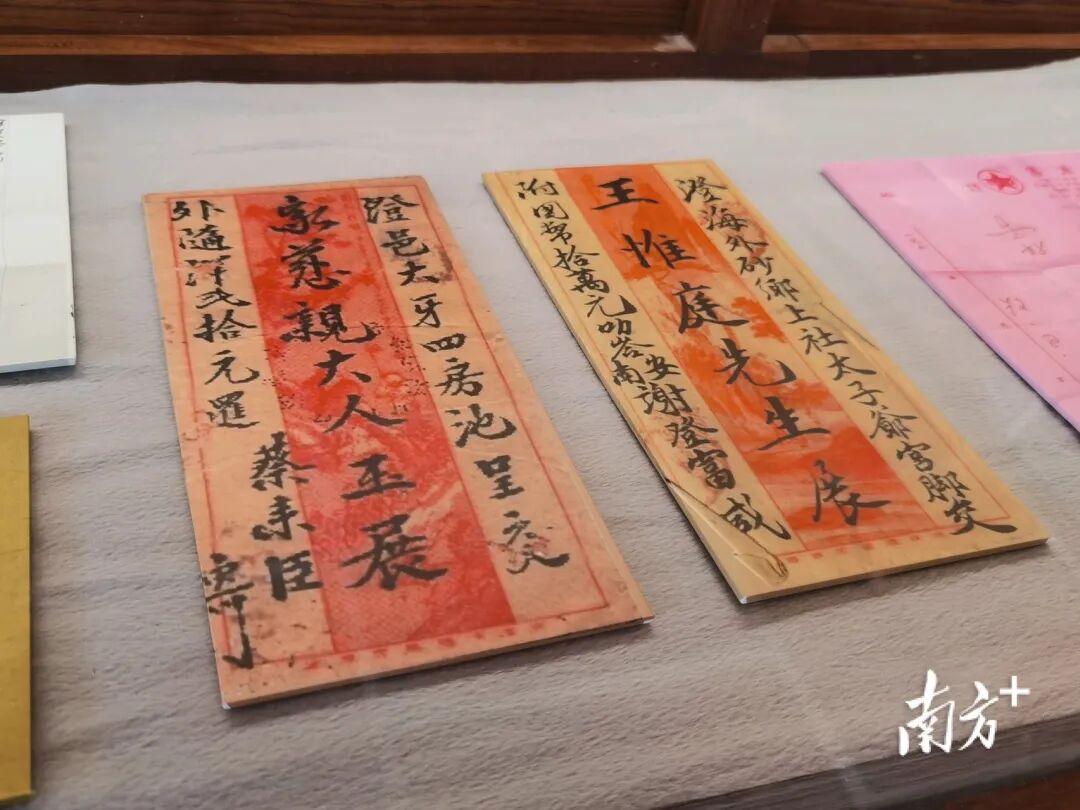 澄邑大牙四房池呈交
家慈親大人玉展
外隨洋弍拾元邏
蔡来臣
寄
澄海外砂鄉上社太子爺宫脚交
王惟庭先生展
附国幣拾萬元叻荅安南謝登富咸
南方+